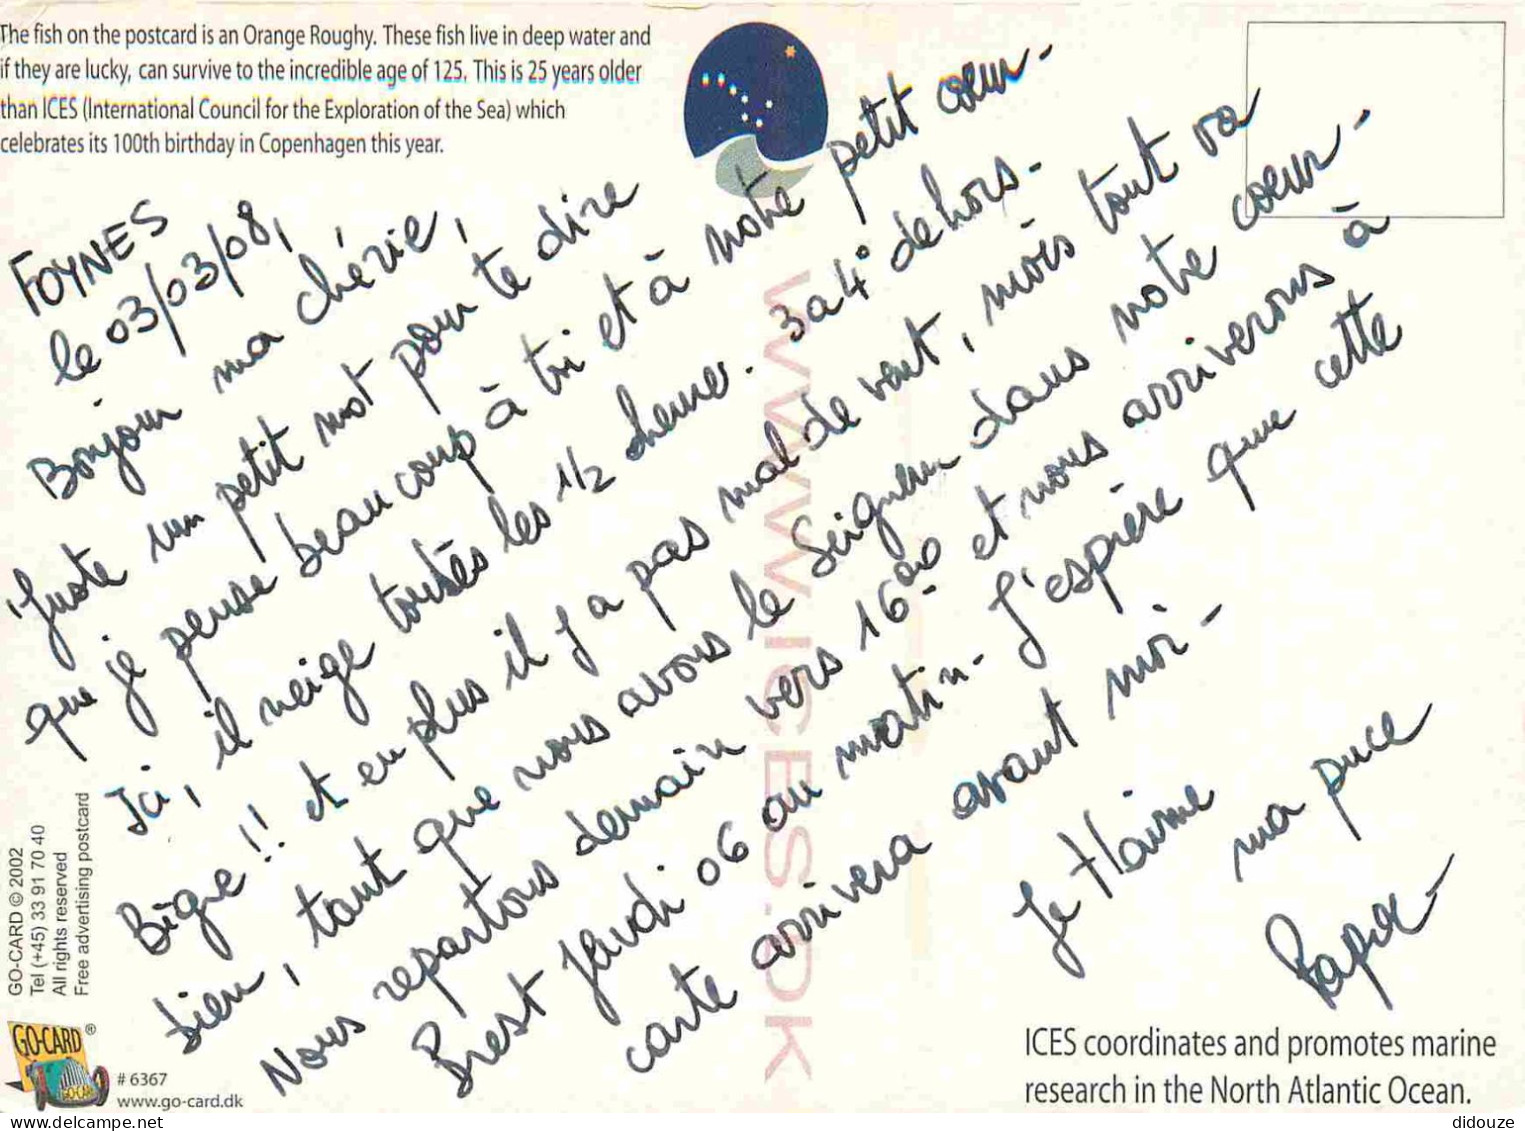 The fish on the postcard is an Orange Roughy. These fish live in deep water and
if they are lucky, can survive to the incredible age of 125. This is 25 years older
than ICES (International Council for the Exploration of the Sea) which
celebrates its 100th birthday in Copenhagen this year.
FOYNES
le 03/03/08,
Bonjour ma chérie,
Juste un petit mot pour te dire
que je pense beaucoup à toi et à notre petit coeur.
Ici, il neige toutes les 1/2 heures. 3 a 4° dehors.
Bigre !! et en plus il y a pas mal de vent, mois tout va
bien, tant que nous avons le Seigneur dans notre coeur.
Nous repartons demain vers 16.00 et nous arriverons à
Brest jeudi 06 au matin. J'espère que cette
carte arrivera avant moi.
Je t'aime
ma puce
WWW.ICES.DK
GO-CARD © 2002
Tel (+45) 33 91 70 40
All rights reserved
Free advertising postcard
GO-CARD®
GO-CARD
# 6367
www.go-card.dk
ICES coordinates and promotes marine
research in the North Atlantic Ocean.
didouze